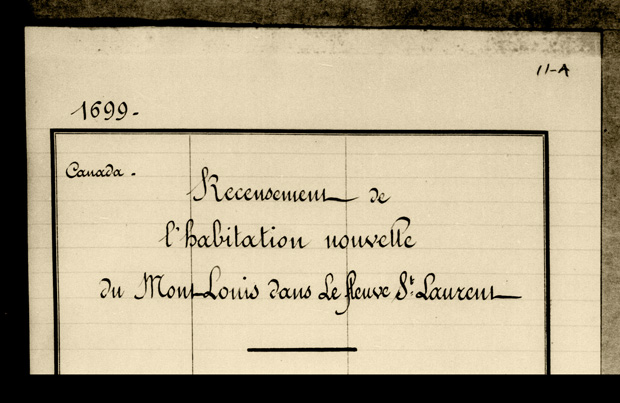 11-A
1699.
Canada.
Recensement de
l'habitation nouvelle
du Mont Louis dans Le fleuve St. Laurent